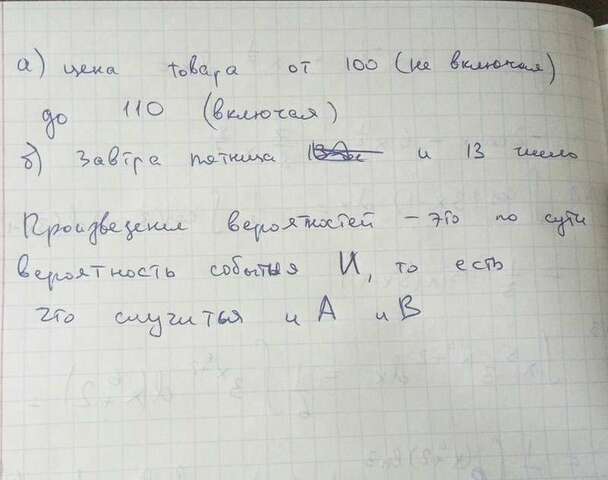 а) цена товара от 100 (не включая)
до 110 (включая)
б) Завтра пятница и 13 число
Произведение вероятностей – это по сути
вероятность события И, то есть
что случиться и А и В